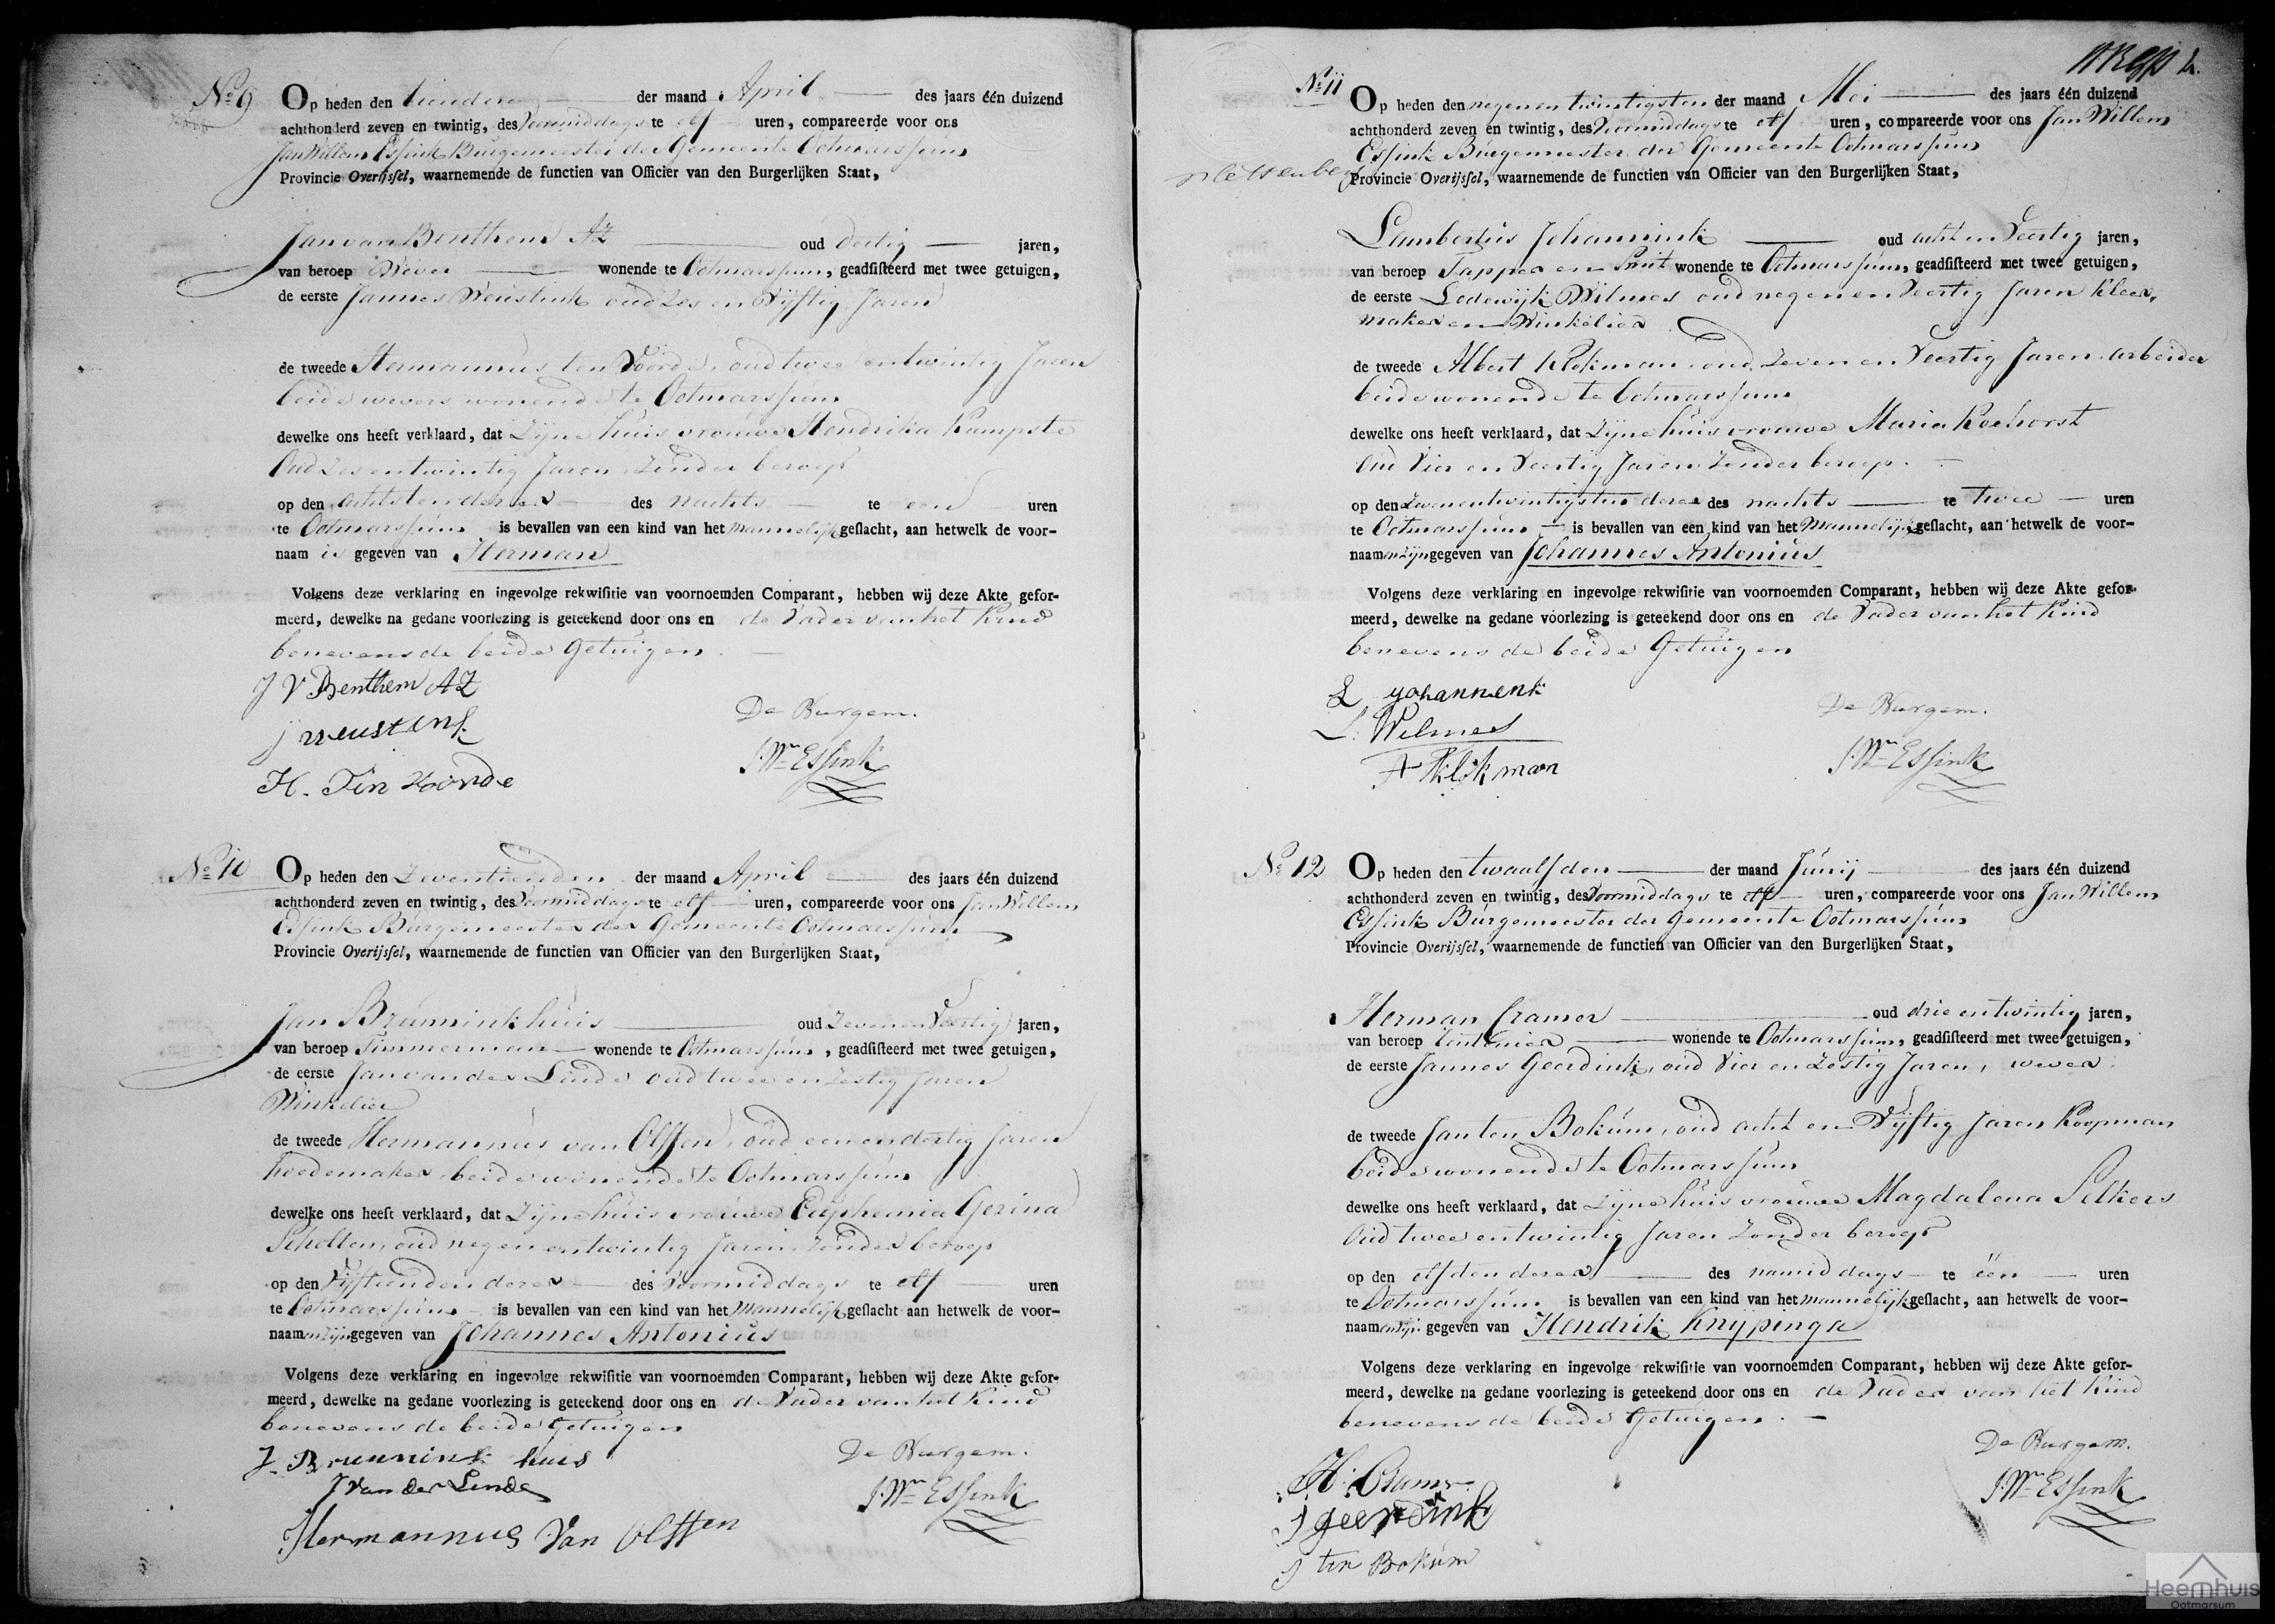 No 9 Op heden den tienden der maand April des jaars één duizend
achthonderd zeven en twintig, des Voormiddags te elf uren, compareerde voor ons
Jan Willem Essink Burgemeester der Gemeente Ootmarssum
Provincie Overijssel, waarnemende de functien van Officier van den Burgerlijken Staat,
Jan van Benthem AZ oud dertig jaren,
van beroep Wever wonende te Ootmarssum, geadsisteerd met twee getuigen,
de eerste Jannes Weustink oud Zes en Vyftig Jaren
de tweede Hermannus ten Voorde, oud twee entwintig Jaren
beide wevers wonende te Ootmarssum
dewelke ons heeft verklaard, dat Zyne huisvrouwe Hendrika Kampste
Oud Zes entwintig Jaren, Zonder beroep
op den achtsten dezer des nachts te een uren
te Ootmarssum is bevallen van een kind van het Mannelijk geslacht, aan hetwelk de voor-
naam is gegeven van Herman
Volgens deze verklaring en ingevolge rekwisitie van voornoemden Comparant, hebben wij deze Akte gefor-
meerd, dewelke na gedane voorlezing is geteekend door ons en de Vader van het Kind
benevens de beide Getuigen
J V Benthem AZ
De Burgem.
J Weustink
J. Wm Essink
H. Ten Voorde
No 10 Op heden den Zeventienden der maand April des jaars één duizend
achthonderd zeven en twintig, des Voormiddags te elf uren, compareerde voor ons Jan Willem
Essink Burgemeester der Gemeente Ootmarssum
Provincie Overijssel, waarnemende de functien van Officier van den Burgerlijken Staat,
Jan Brunninkhuis oud Zeven en Veertig jaren,
van beroep Timmerman wonende te Ootmarssum, geadsisteerd met twee getuigen,
de eerste Jan van der Linde oud twee en Zestig Jaren
Winkelier
de tweede Hermannus van Olffen, oud een en dertig Jaren
hoedemaker, beide wonende te Ootmarssum
dewelke ons heeft verklaard, dat Zyne huisvrouwe Euphemia Gezina
Scholten, oud negen entwintig Jaren, Zonder beroep
op den Vyftienden dezer des Voormiddags te elf uren
te Ootmarssum is bevallen van een kind van het Mannelijk geslacht aan hetwelk de voor-
naamen zijn gegeven van Johannes Antonius
Volgens deze verklaring en ingevolge rekwisitie van voornoemden Comparant, hebben wij deze Akte gefor-
meerd, dewelke na gedane voorlezing is geteekend door ons en de Vader van het Kind
benevens de beide Getuigen
J. Brunnink huis
De Burgem.
J Van der Linde
J. Wm Essink
Hermannus Van Olffen
No 11 Op heden den negen en twintigsten der maand Mei des jaars één duizend
achthonderd zeven en twintig, des Voormiddags te elf uren, compareerde voor ons Jan Willem
Essink Burgemeester der Gemeente Ootmarssum
Provincie Overijssel, waarnemende de functien van Officier van den Burgerlijken Staat,
Lambertus Johannink oud acht en Veertig jaren,
van beroep Tapper en Smit wonende te Ootmarssum, geadsisteerd met twee getuigen,
de eerste Lodewijk Wilmes oud negen en Veertig Jaren Kleer,
maker en Winkelier
de tweede Albert Klokman, oud Zeven en Veertig Jaren, arbeider
beide wonende te Ootmarssum
dewelke ons heeft verklaard, dat Zyne huisvrouwe Maria Koehorst
Oud Vier en Veertig Jaren Zonder beroep.
op den Zevenentwintigsten dezer des nachts te twee uren
te Ootmarssum is bevallen van een kind van het Mannelijk geslacht, aan hetwelk de voor-
naamen zijn gegeven van Johannes Antonius
Volgens deze verklaring en ingevolge rekwisitie van voornoemden Comparant, hebben wij deze Akte gefor-
meerd, dewelke na gedane voorlezing is geteekend door ons en de Vader van het Kind
benevens de beide Getuigen
L Johannenk
De Burgem.
L. Wilmes
J. Wm Essink
A Klokman
No 12 Op heden den twaalfden der maand Junij des jaars één duizend
achthonderd zeven en twintig, des Voormiddags te elf uren, compareerde voor ons Jan Willem
Essink Burgemeester der Gemeente Ootmarssum
Provincie Overijssel, waarnemende de functien van Officier van den Burgerlijken Staat,
Herman Cramer oud drie entwintig jaren,
van beroep wonende te Ootmarssum, geadsisteerd met twee getuigen,
de eerste Jannes Geerdink, oud Vier en Zestig Jaren, wever
de tweede Jan ten Bokum, oud acht en Vyftig Jaren Koopman
beide wonende te Ootmarssum
dewelke ons heeft verklaard, dat Zyne huisvrouwe Magdalena Selkers
Oud twee entwintig Jaren Zonder beroep
op den elfden dezer des namiddags te één uren
te Ootmarssum is bevallen van een kind van het mannelijk geslacht, aan hetwelk de voor-
naamen zijn gegeven van Hendrik Knijpinga
Volgens deze verklaring en ingevolge rekwisitie van voornoemden Comparant, hebben wij deze Akte gefor-
meerd, dewelke na gedane voorlezing is geteekend door ons en de Vader van het Kind
benevens de beide Getuigen.
De Burgem.
H. Cramer
J. Wm Essink
J geerdink
J ten Bokum
Heemhuis
Ootmarsum